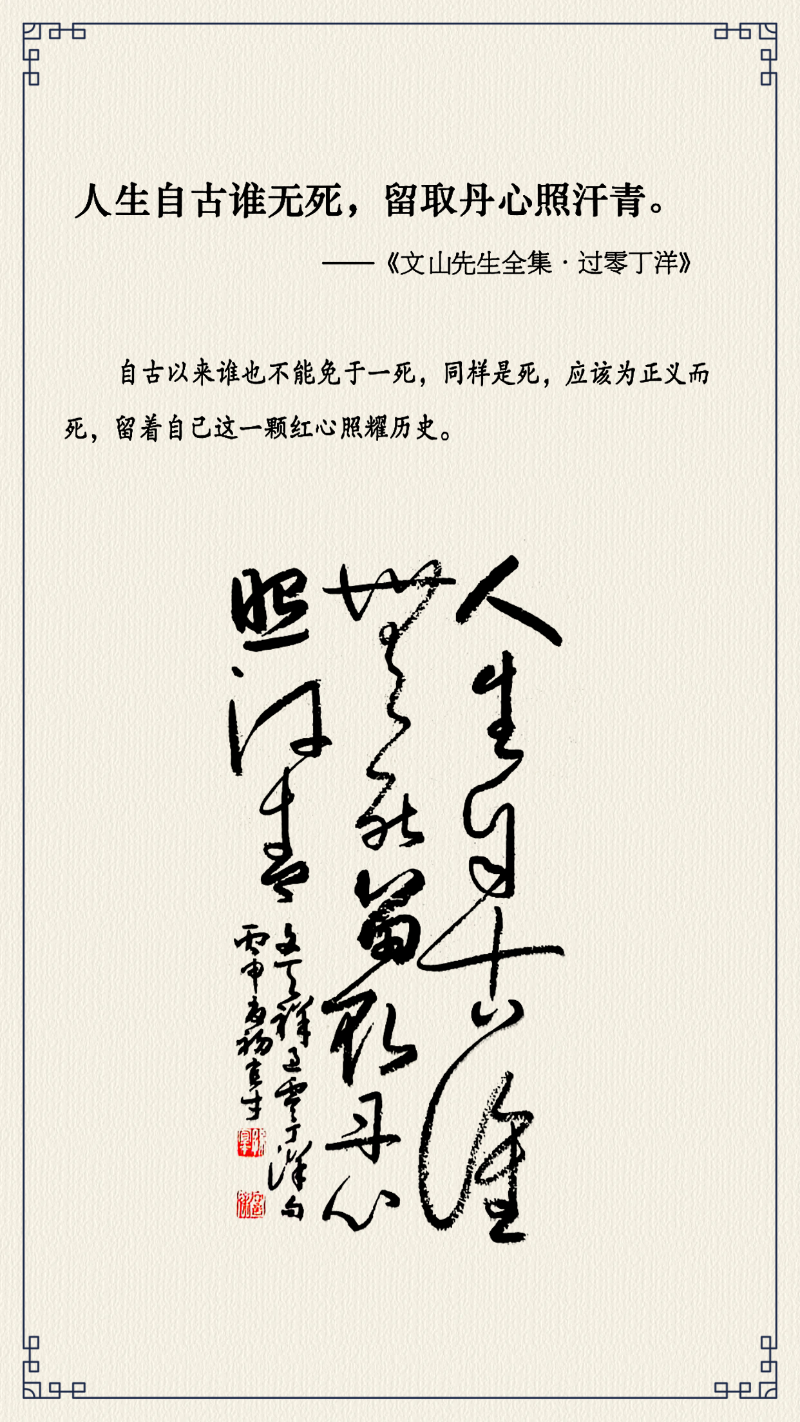 人生自古谁无死，留取丹心照汗青。
——《文山先生全集·过零丁洋》
自古以来谁也不能免于一死，同样是死，应该为正义而
死，留着自己这一颗红心照耀历史。
人生自古谁
无死留取丹心
照汗青
文天祥过零丁洋句